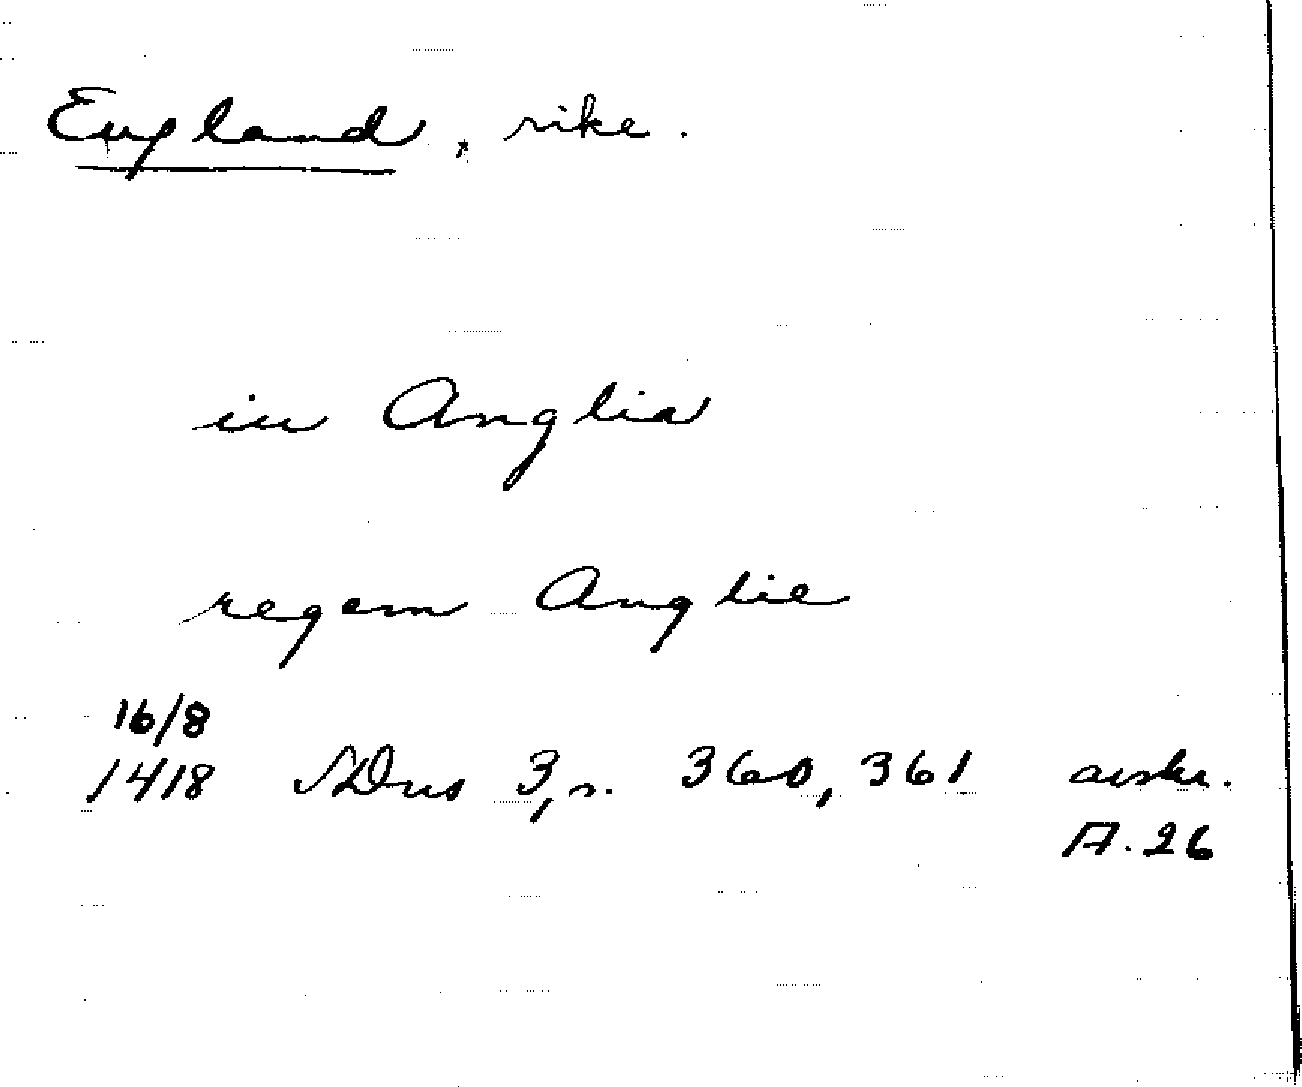 England, rike.
in Anglia
regem Anglie
16/8
1418 SDns 3, s. 360, 361 avskr.
A. 26